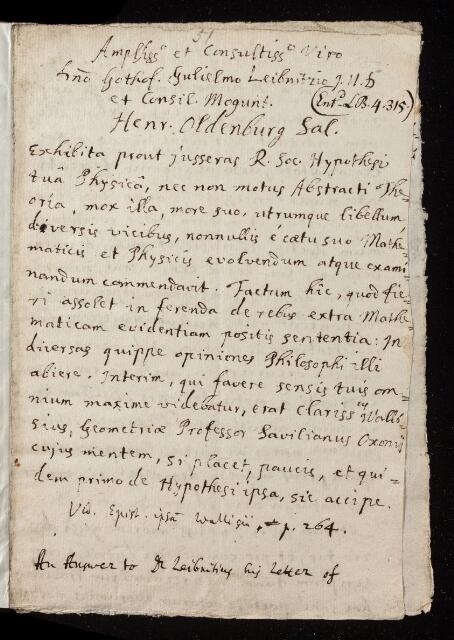 31
Ampliss° et Consultiss° Viro
Dno Gothof. Gulielmo Leibnitzio J. U. D
et Consil. Mogunt. (Entd. LB. 4. 315.)
Henr. Oldenburg Sal.
Exhibita prout jusseras R. Soc. Hypothesi
tuâ Physicâ, nec non motus Abstracti The=
oriâ, mox illa, more suo, utrumque libellum
diversis vicibus, nonnullis è cœtu suo Mathe=
maticis et Physicis evolvendum atque exami
nandum commendavit. Factum hic, quod fie=
ri assolet in ferenda de rebus extra Mathe=
maticam evidentiam positis sententia: In
diversas quippe opiniones Philosophi illi
abiere. Interim, qui favere sensis tuis om=
nium maxime videbatur, erat Clariss. Wallis
sius, Geometriæ Professor Savilianus Oxonij
cujus mentem, si placet, paucis, et qui=
dem primo de Hypothesi ipsa, sic accipe.
Vid. Epist. ipsā Wallisii, p. 264.
An Answer to Dr Leibnitius his Letter of